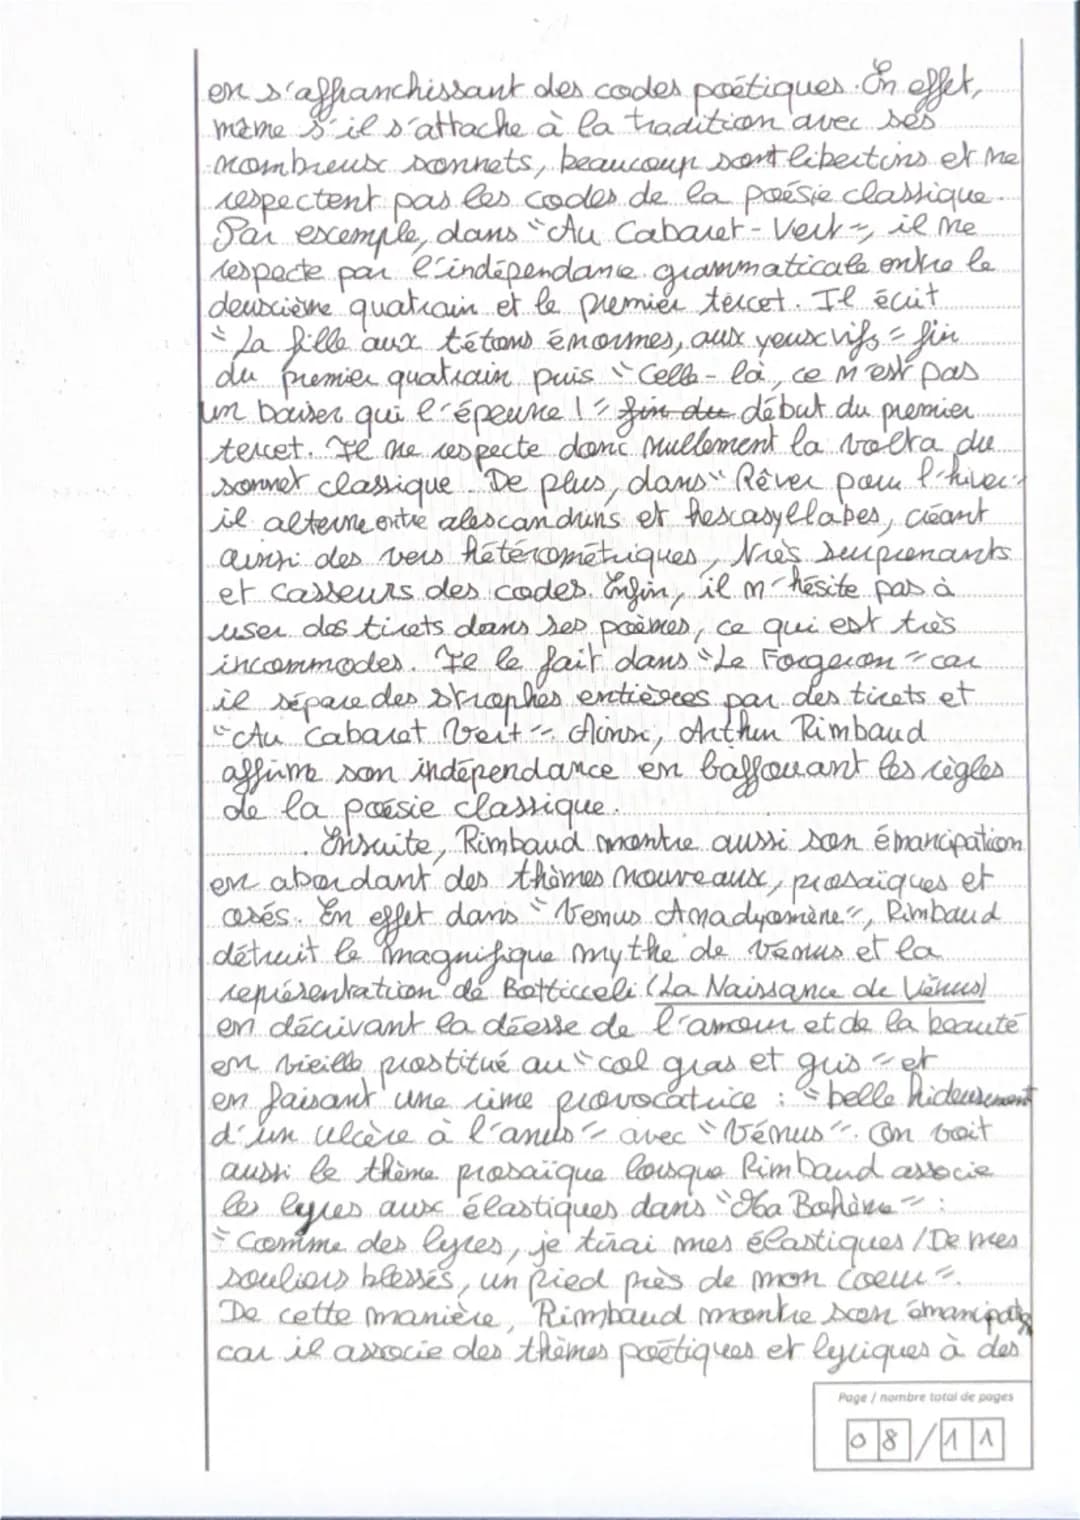 en s'affranchissant des codes poétiques. En effet,
même s'il s'attache à la tradition avec ses
nombreux sonnets, beaucoup sont libertins et ne
respectent pas les codes de la poésie classique.
Par exemple, dans "Au Cabaret-Vert", il ne
respecte pas l'indépendance grammaticale entre le
deuxième quatrain et le premier tercet. Il écrit
"La fille aux tétons énormes, aux yeux vifs" fin
du premier quatrain puis "Celle-là, ce n'est pas
un baiser qui l'épeure !" fin du début du premier
tercet. Il ne respecte donc nullement la volta du
sonnet classique. De plus, dans "Rêver pour l'hiver"
il alterne entre alexandrins et hexasyllabes, créant
ainsi des vers hétérométriques, très surprenants
et casseurs des codes. Enfin, il n'hésite pas à
user des tirets dans ses poèmes, ce qui est très
incommodes. Il le fait dans "Le Forgeron" car
il sépare des strophes entières par des tirets et
"Au Cabaret Vert". Ainsi, Arthur Rimbaud
affirme son indépendance en baffouant les règles
de la poésie classique.
Ensuite, Rimbaud montre aussi son émancipation
en abordant des thèmes nouveaux, prosaïques et
osés. En effet dans "Vénus Anadyomène", Rimbaud
détruit le magnifique mythe de Vénus et la
représentation de Botticceli (La Naissance de Vénus)
en décrivant la déesse de l'amour et de la beauté
en vieille prostitué au "col gras et gris" et
en faisant une rime provocatrice : "belle hideusement
d'un ulcère à l'anus" avec "Vénus". On voit
aussi le thème prosaïque lorsque Rimbaud associe
les lyres aux élastiques dans "Ma Bohème" :
"Comme des lyres, je tirai mes élastiques / De mes
souliers blessés, un pied près de mon coeur".
De cette manière, Rimbaud montre son émancipation
car il associe des thèmes poétiques et lyriques à des
Page / nombre total de pages
08/11